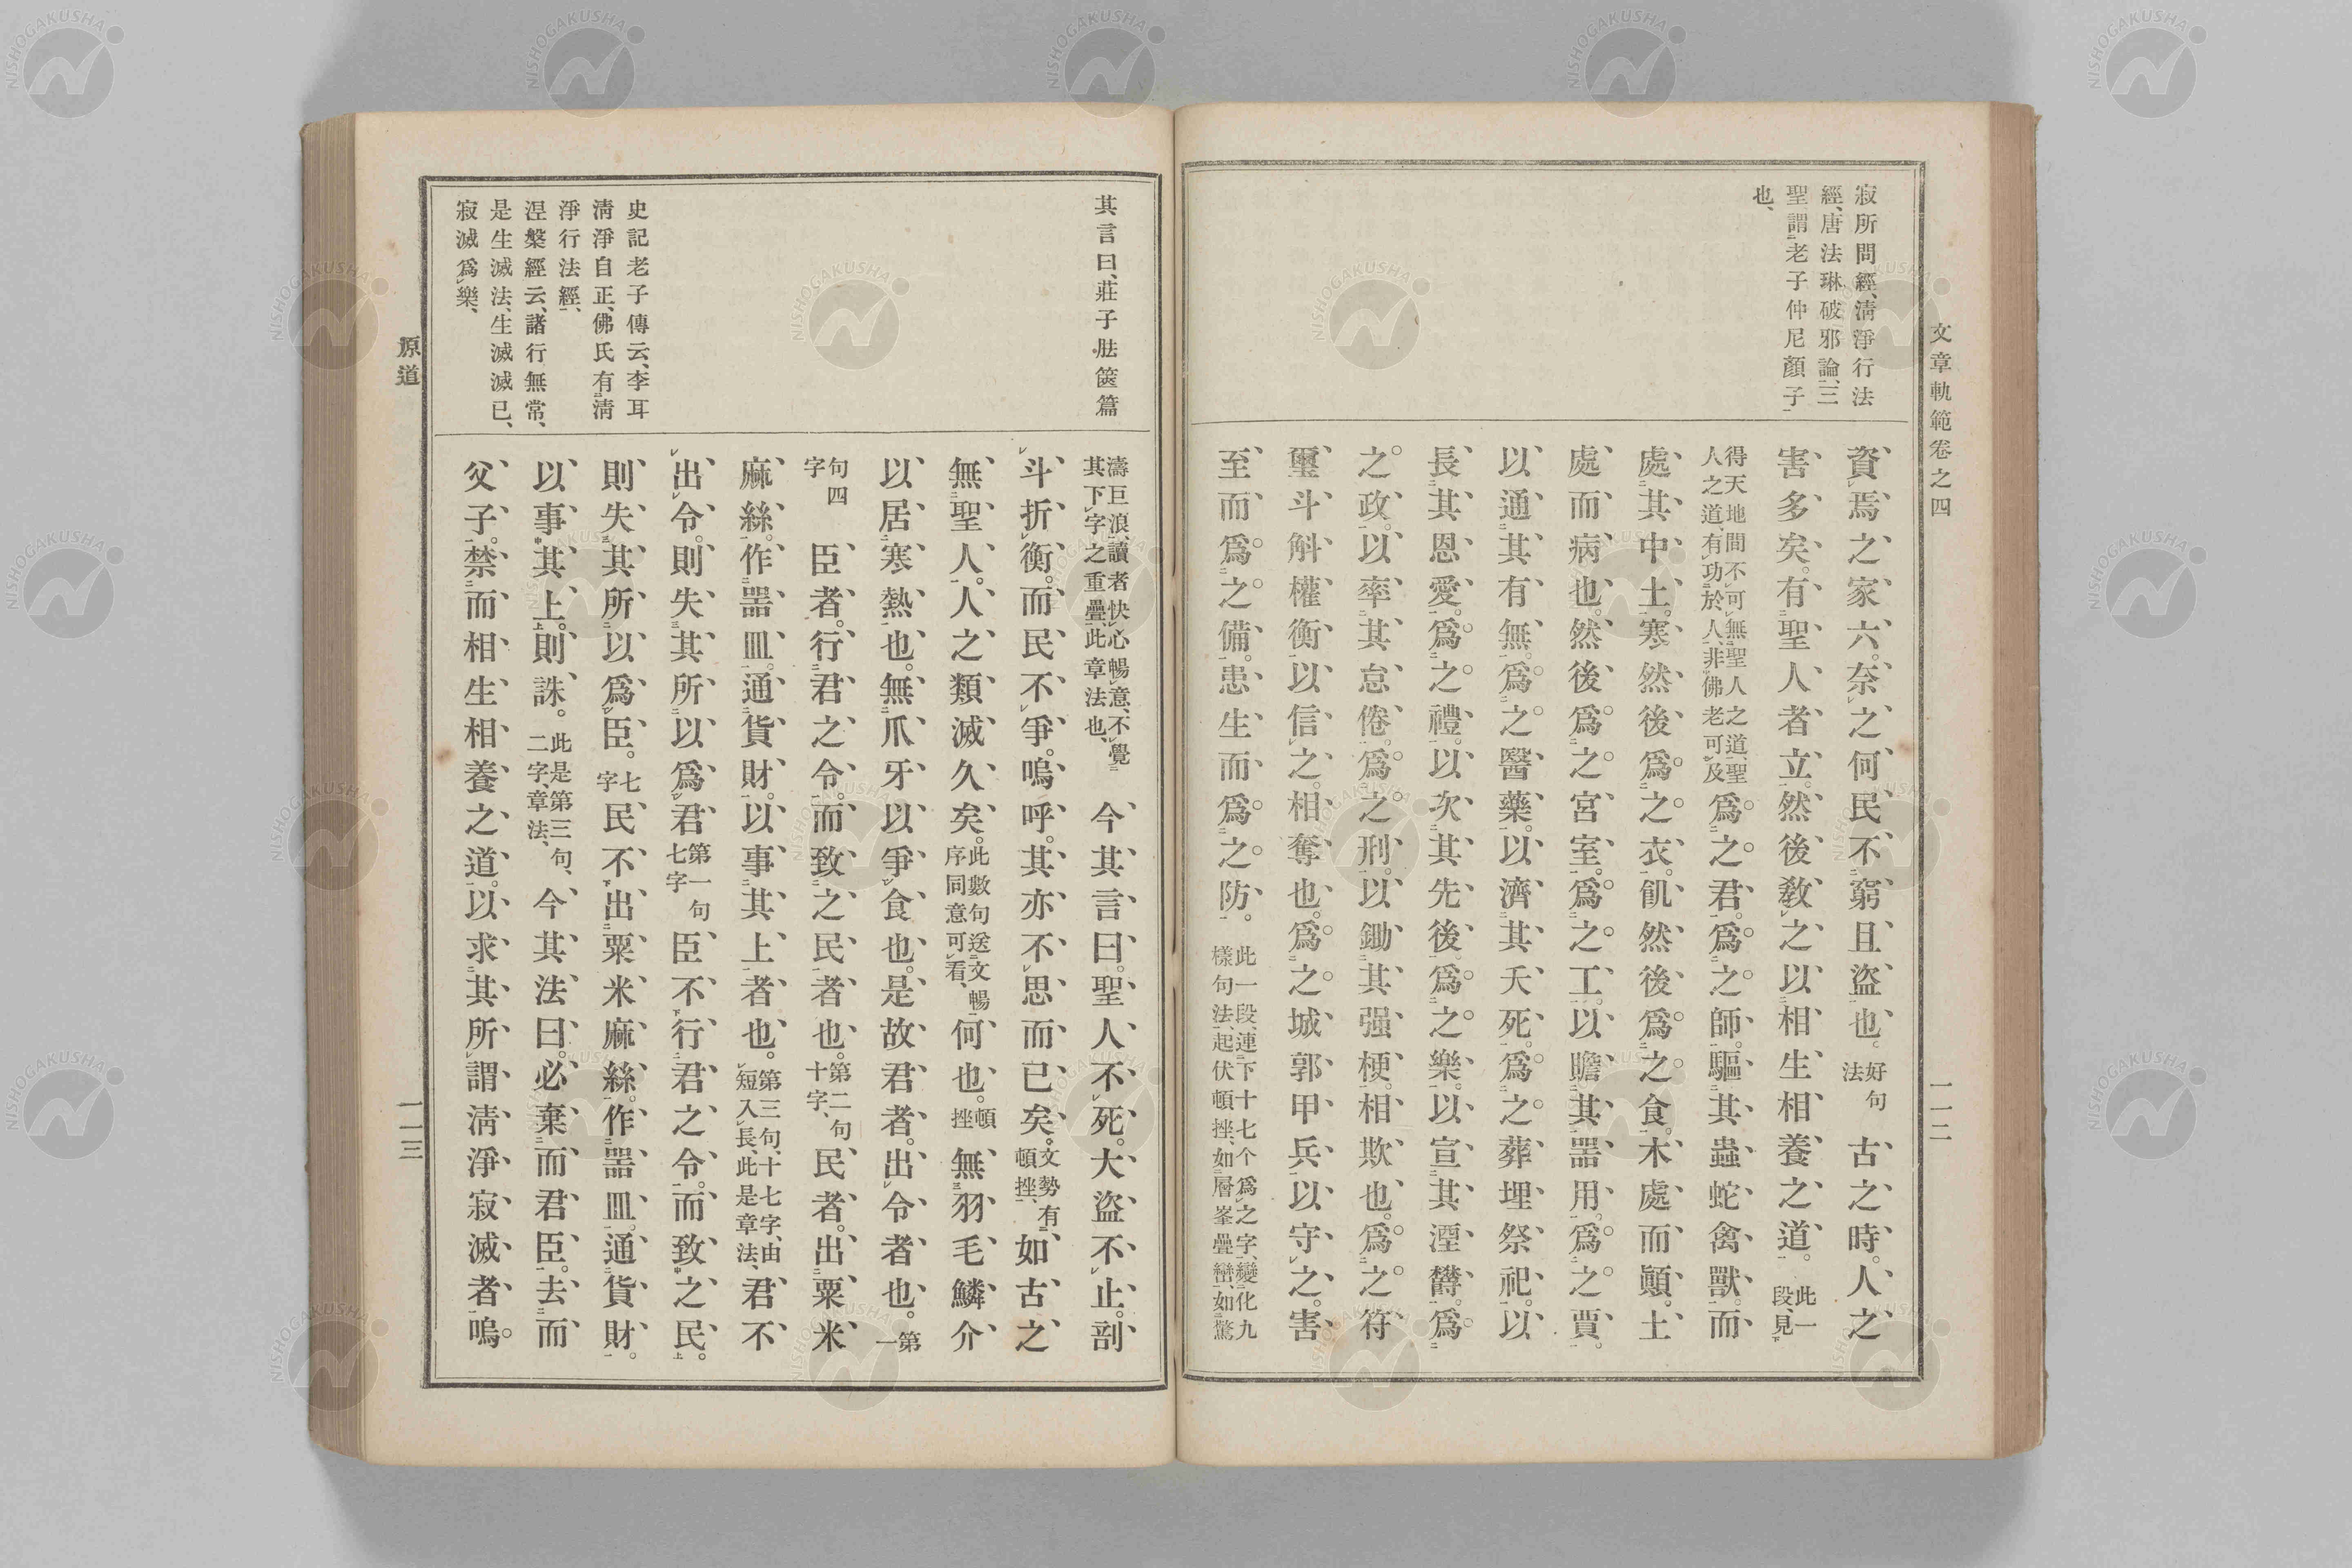 文章軌範卷之四
一一二
寂所問經、淸淨行法
經、唐法琳破邪論、三
聖謂老子仲尼顏子
也、
資焉之家六。奈之何民不窮且盜也。好句法 古之時。人之
害多矣。有聖人者立。然後敎之以相生相養之道。此一段、見
得天地間不可無聖人之道、聖人之道、有功於人、非佛老可及 爲之君。爲之師。驅其蟲蛇禽獸。而
處其中土。寒然後爲之衣。飢然後爲之食。木處而顚。土
處而病也。然後爲之宮室。爲之工。以贍其器用。爲之賈。
以通其有無。爲之醫藥。以濟其夭死。爲之葬埋祭祀。以
長其恩愛。爲之禮。以次其先後。爲之樂。以宣其湮鬱。爲
之政。以率其怠倦。爲之刑。以鋤其强梗。相欺也。爲之符
璽斗斛權衡。以信之。相奪也。爲之城郭甲兵。以守之。害
至而爲之備。患生而爲之防。此一段、連下十七个爲之字、變化九樣句法、起伏頓挫、如層峯疊巒、如驚
其言曰、莊子胠篋篇
史記老子傳云、李耳
淸淨自正、佛氏有淸
淨行法經、
涅槃經云、諸行無常、
是生滅法、生滅滅已、
寂滅爲樂、
濤巨浪、讀者快心暢意、不覺其下字之重疊、此章法也、 今其言曰。聖人不死。大盜不止。剖
斗折衡。而民不爭。嗚呼。其亦不思而已矣。文勢有頓挫、如古之
無聖人。人之類滅久矣。此數句送文暢序同意可看、何也。頓挫 無羽毛鱗介
以居寒熱也。無爪牙以爭食也。是故君者。出令者也。第一
句四字 臣者。行君之令。而致之民者也。第二句十字、民者。出粟米
麻絲。作器皿。通貨財。以事其上者也。第三句、十七字、由短入長、此是章法、君不
出令。則失其所以爲君 第一句七字 臣不行君之令。而致之民。
則失其所以爲臣。七字 民不出粟米麻絲。作器皿。通貨財。
以事其上。則誅。此是第三句、二字、章法、今其法曰。必棄而君臣。去而
父子。禁而相生相養之道。以求其所謂淸淨寂滅者。嗚
原道
一一三